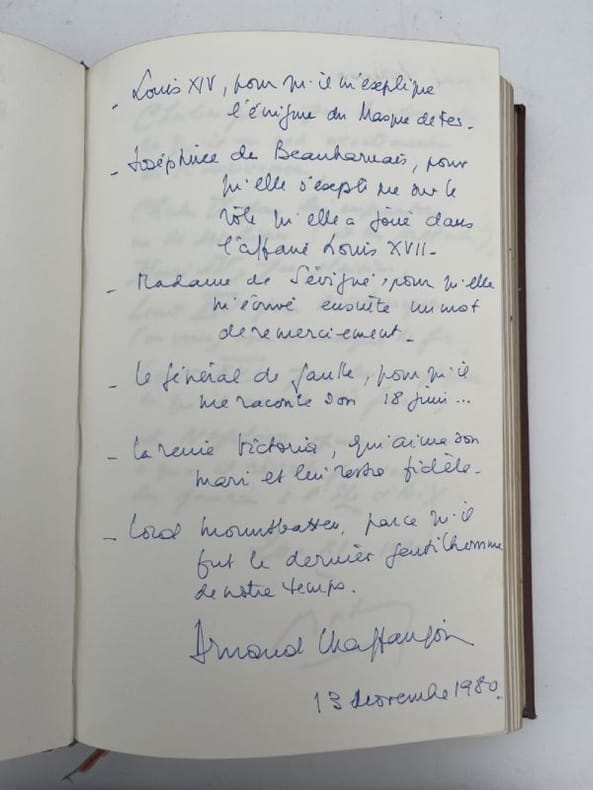 - Louis XIV, pour qu'il m'explique
l'énigme du Masque de Fer.
- Joséphine de Beauharnais, pour
qu'elle s'explique sur le
rôle qu'elle a joué dans
l'affaire Louis XVII.
- Madame de Sévigné, pour qu'elle
m'écrive ensuite un mot
de remerciement.
- Le Général de Gaulle, pour qu'il
me raconte son 18 juin...
- La reine Victoria, qui aima son
mari et lui resta fidèle.
- Lord Mountbatten, parce qu'il
fut le dernier gentilhomme
de notre temps.
Armand Chaffanjon
13 novembre 1980.